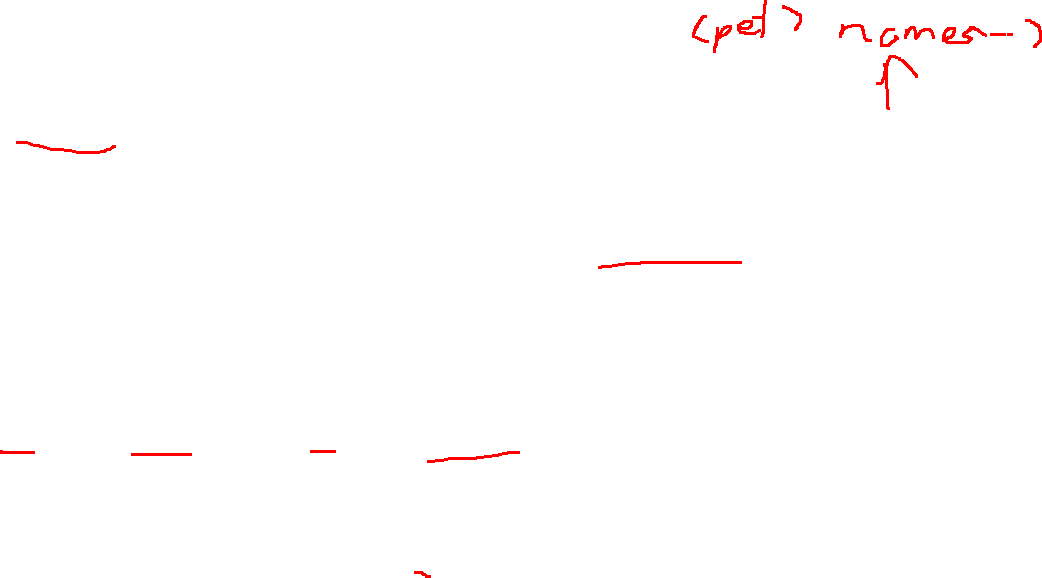 (pet) names--)